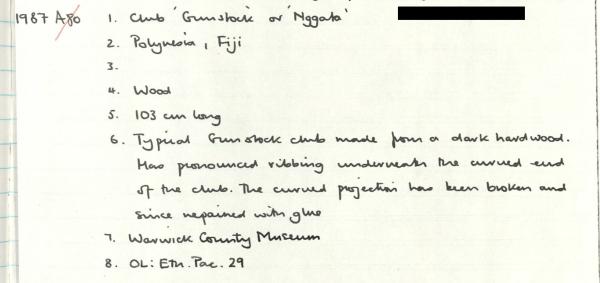 1987 A80 1. Club 'Gunstock' or 'Nggata'
2. Polynesia, Fiji
3.
4. Wood
5. 103 cm long
6. Typical Gunstock club made from a dark hardwood.
Has pronounced ribbing underneath the curved end
of the club. The curved projection has been broken and
since repaired with glue
7. Warwick County Museum
8. OL: Eth. Pac. 29